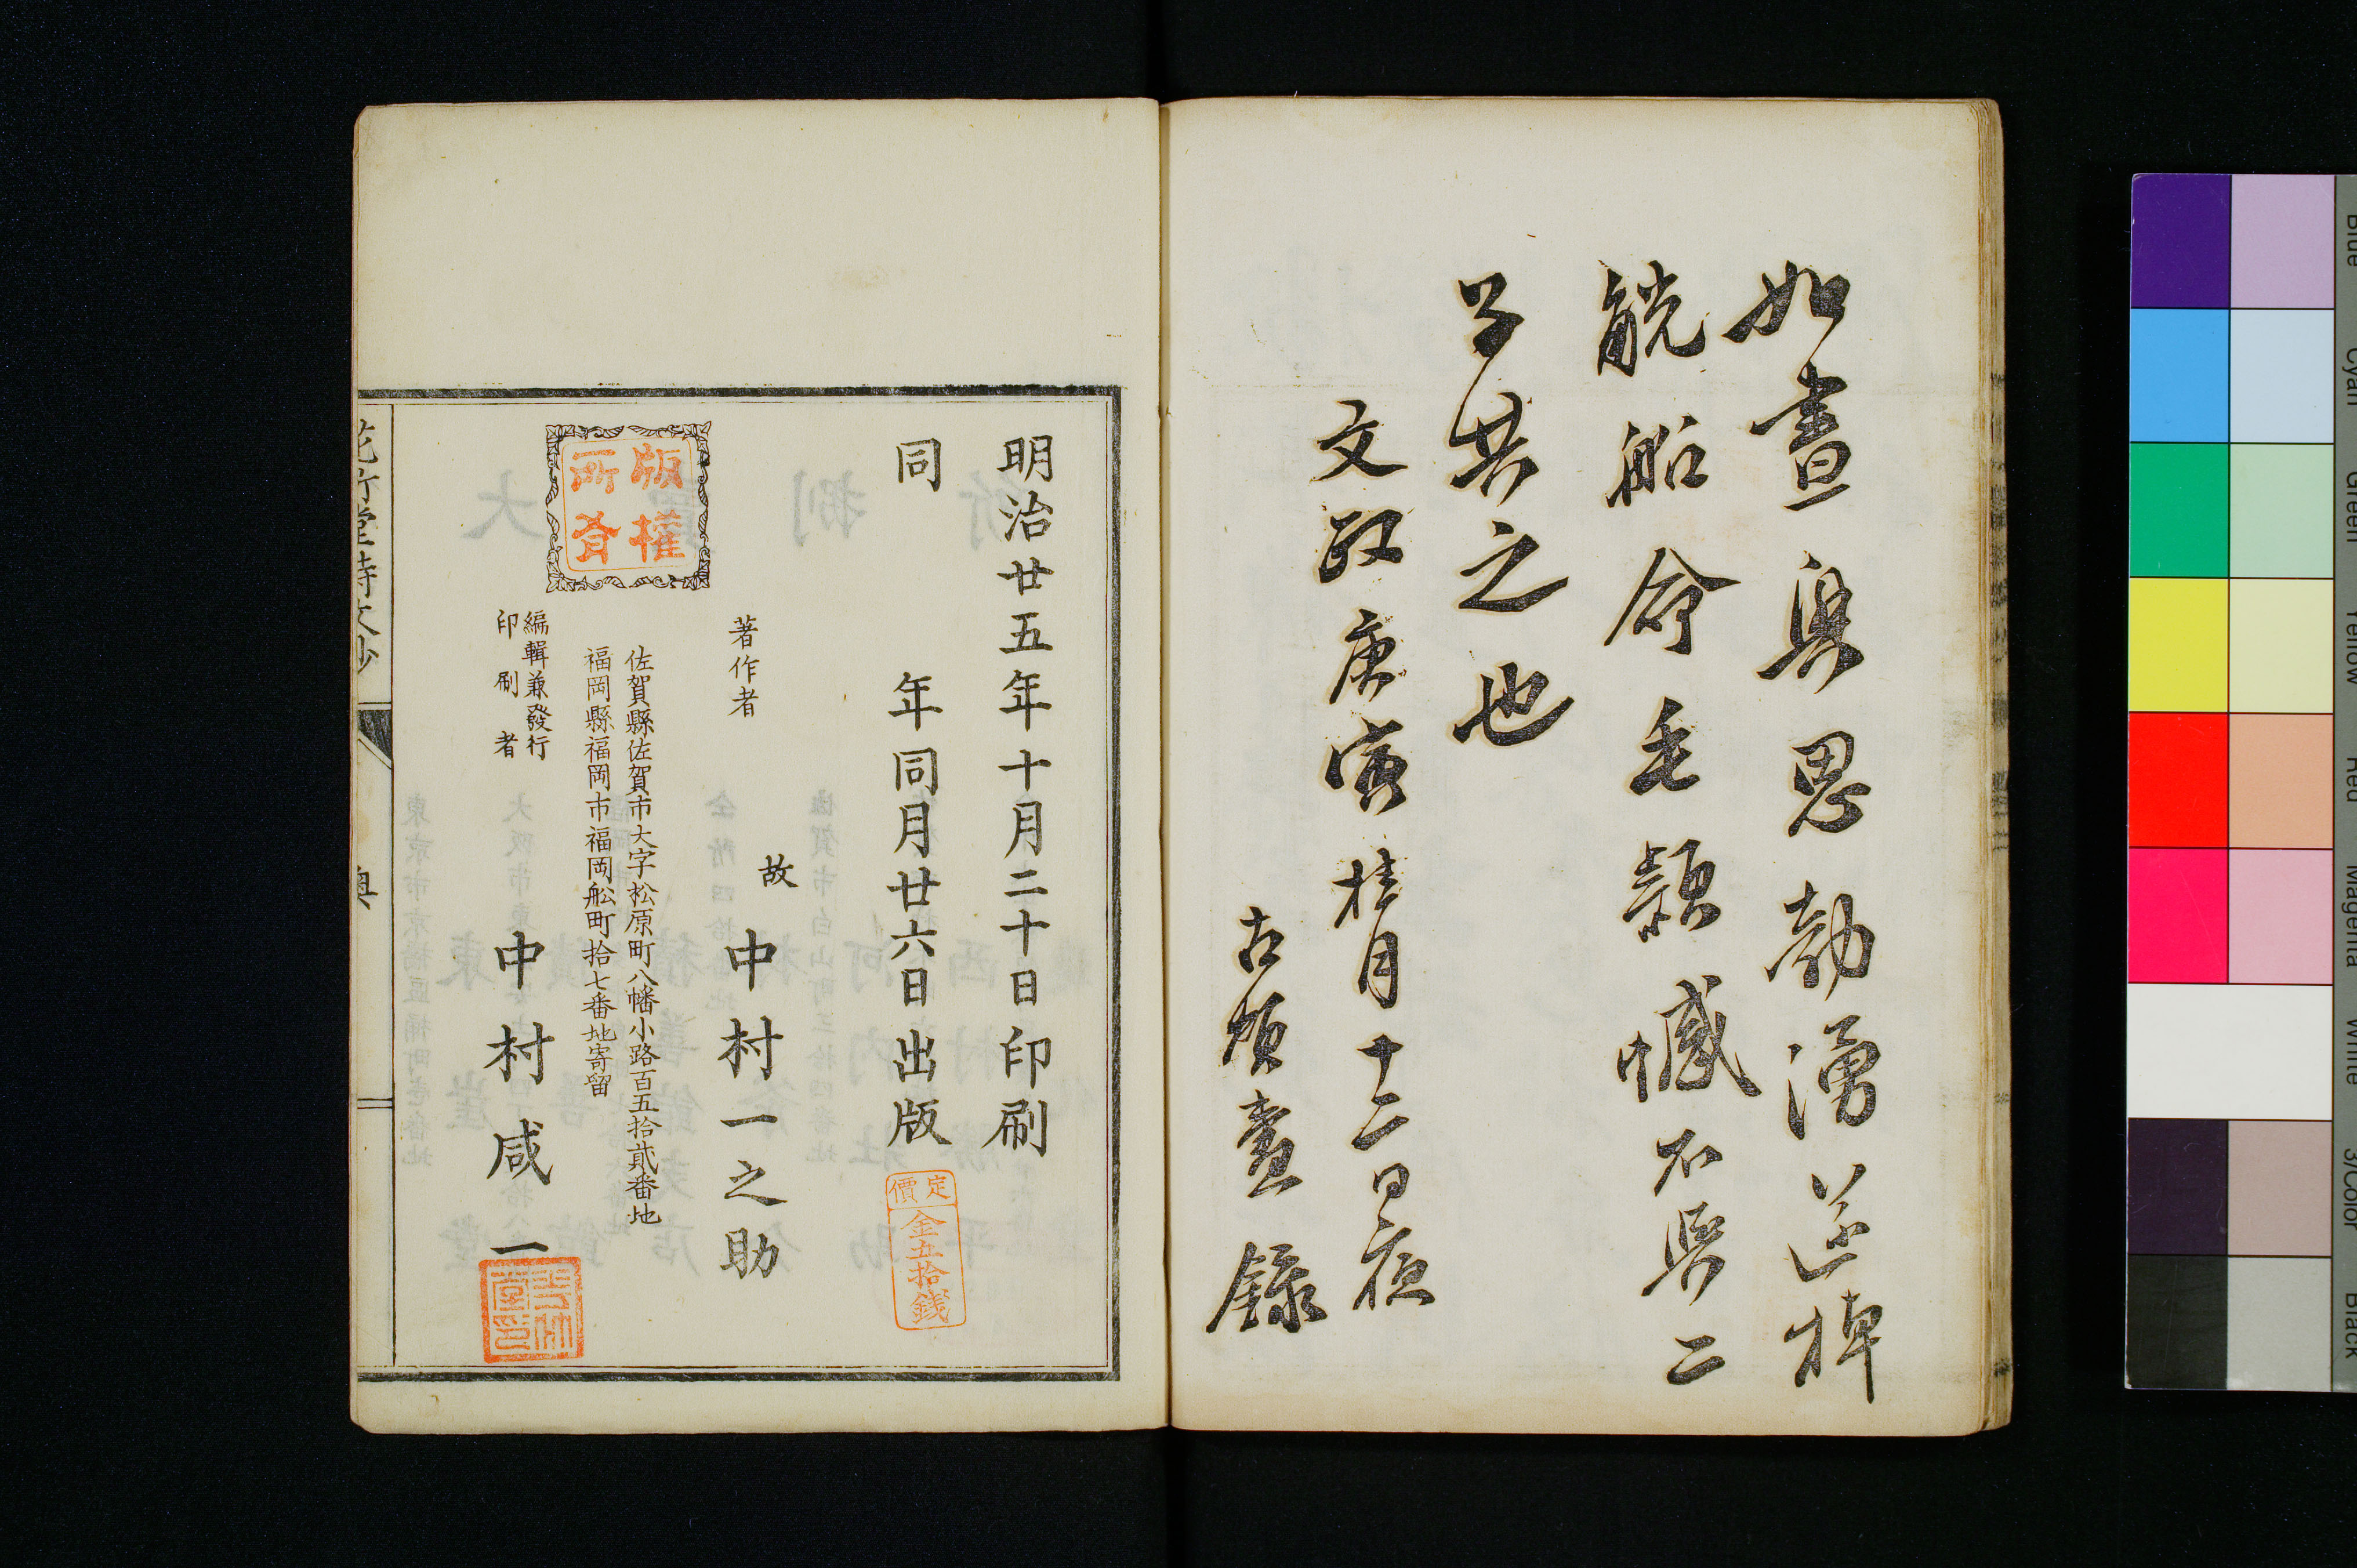 如晝興思勃湧並棹
觥船命毛穎憾不與二
子共之也
文政庚寅桂月十二日夜
古煩齋錄
明治廿五年十月二十日印刷
同年同月廿六日出版
定價
金五拾錢
著作者
故
中村一之助
版權
所有
佐賀縣佐賀市大字松原町八幡小路百五拾貳番地
福岡縣福岡市福岡舩町拾七番地寄留
編輯兼發行
印刷者
中村咸一
花竹堂詩文鈔
奥
Blue
Cyan
Green
Yellow
Red
Magenta
White
3/Color
Black